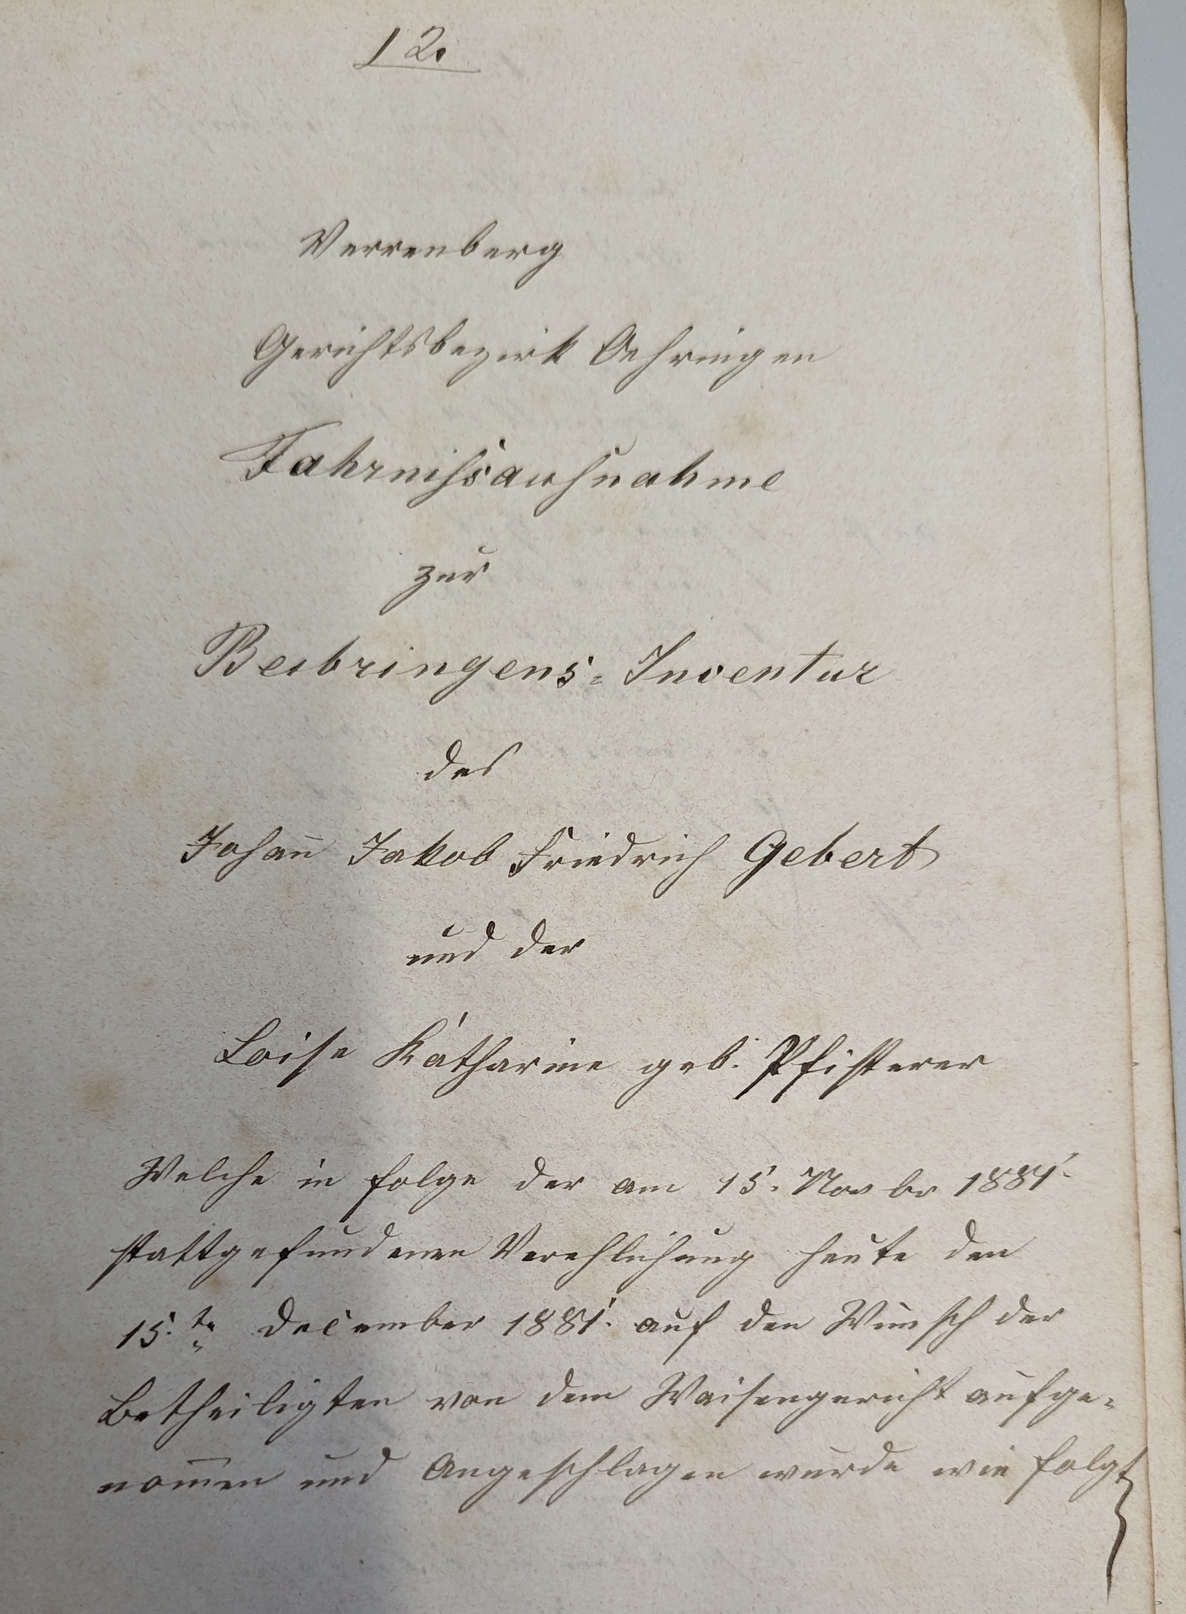 12.
Verrenberg
Gerichtsbezirk Oehringen
Fahrnißaufnahme
zur
Beibringens-Inventur
des
Johan̅ Jakob Friedrich Gebert
und der
Loise Katharine geb. Pfisterer
Welche in folge der am 15. Novbr 1881.
stattgefundenen Verehlichung heute den
15.te December 1881. auf den Wunsch der
Betheiligten von dem Waisengericht aufge-
nom̅en und Angeschlagen wurde wie folgt